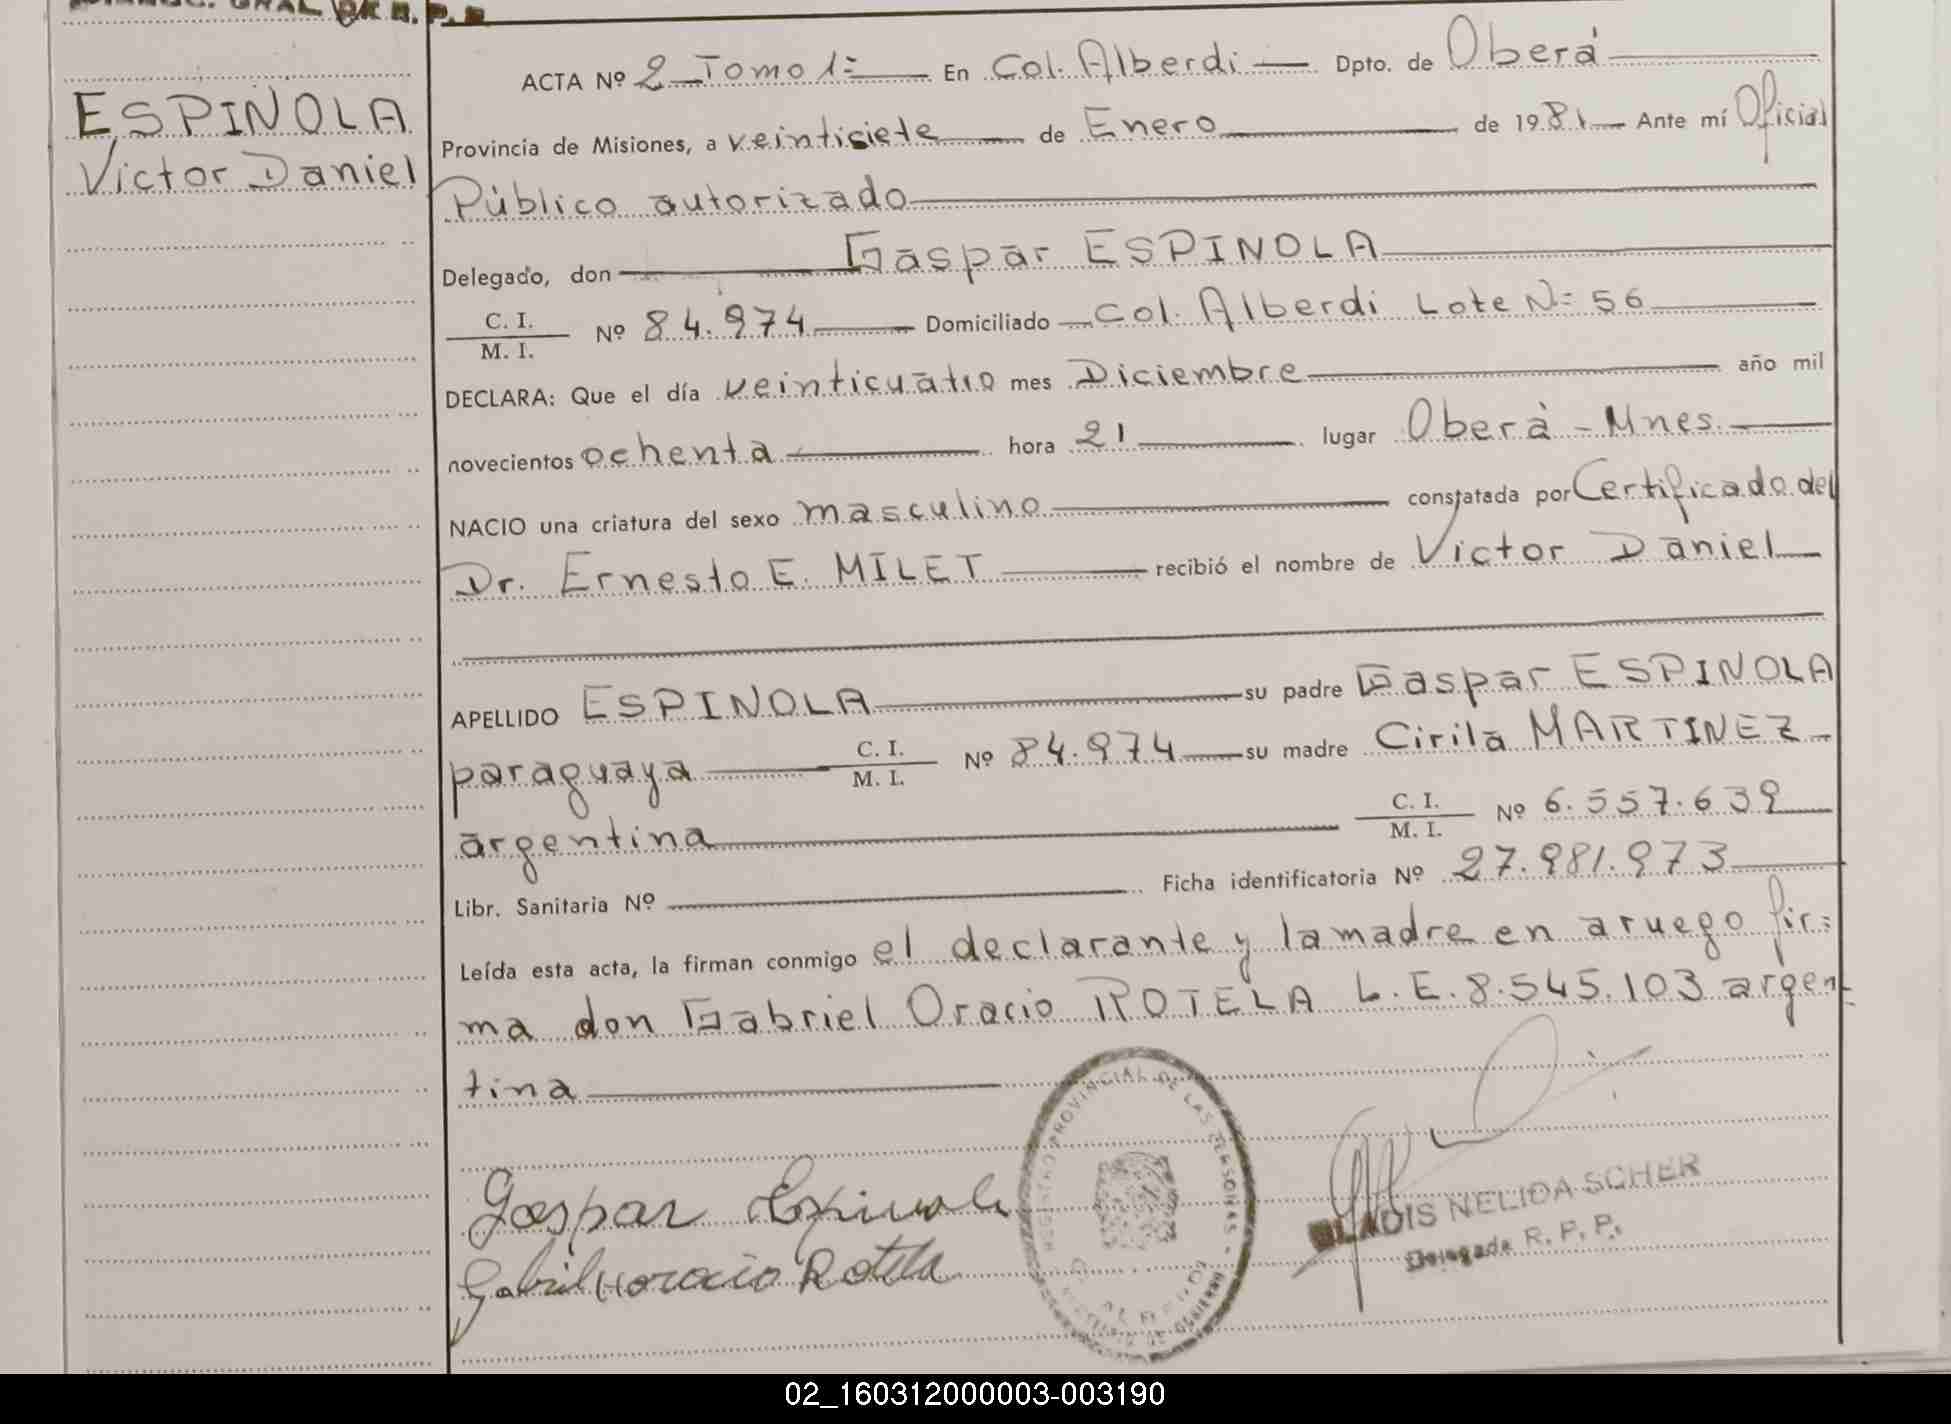 GRAL DE R. P. P.
ESPINOLA
Victor Daniel
ACTA Nº 2 Tomo 1= En Col. Alberdi Dpto. de Oberá
Provincia de Misiones, a veinticiete de Enero de 1981 Ante mí Oficial
Público autorizado
Delegado, don Gaspar ESPINOLA
C. I.
M. I. Nº 84.974 Domiciliado Col. Alberdi Lote N= 56
DECLARA: Que el día veinticuatro mes Diciembre año mil
novecientos ochenta hora 21 lugar Oberá - Mnes.
NACIO una criatura del sexo masculino constatada por Certificado del
Dr. Ernesto E. MILET recibió el nombre de Victor Daniel
APELLIDO ESPINOLA su padre Gaspar ESPINOLA
paraguaya C. I.
M. I. Nº 84.974 su madre Cirila MARTINEZ
argentina C. I.
M. I. Nº 6.557.639
Libr. Sanitaria Nº Ficha identificatoria Nº 27.981.973
Leída esta acta, la firman conmigo el declarante y la madre en aruego fir=
ma don Gabriel Oracio ROTELA L.E. 8.545.103 argen=
tina
Gaspar Espinola
Gabriel Horacio Rotela
PROVINCIAL DE LAS PERSONAS
GLADIS NELIDA SCHER
Delegada R. P. P.
02_160312000003-003190